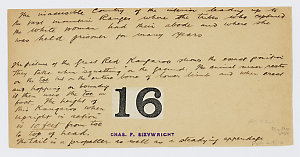 The inaccessible Country of the interior leading up to
the vast mountain Ranges where the tribes who captured
the white woman had their abode and where she
was held prisoner for many years
The picture of the great Red Kangaroo shows the exact position
They take when squatting on the ground. The animal never rests
on the toe but on the entire bone of lower limb and when erect
and hopping or bounding
it then uses the toe or
foot. The height of
this Kangaroo when
upright in nature
is 10 feet from toe
to top of head.
The tail is a propeller as well as a steadying appendage
16
CHAS. P. SIEVWRIGHT